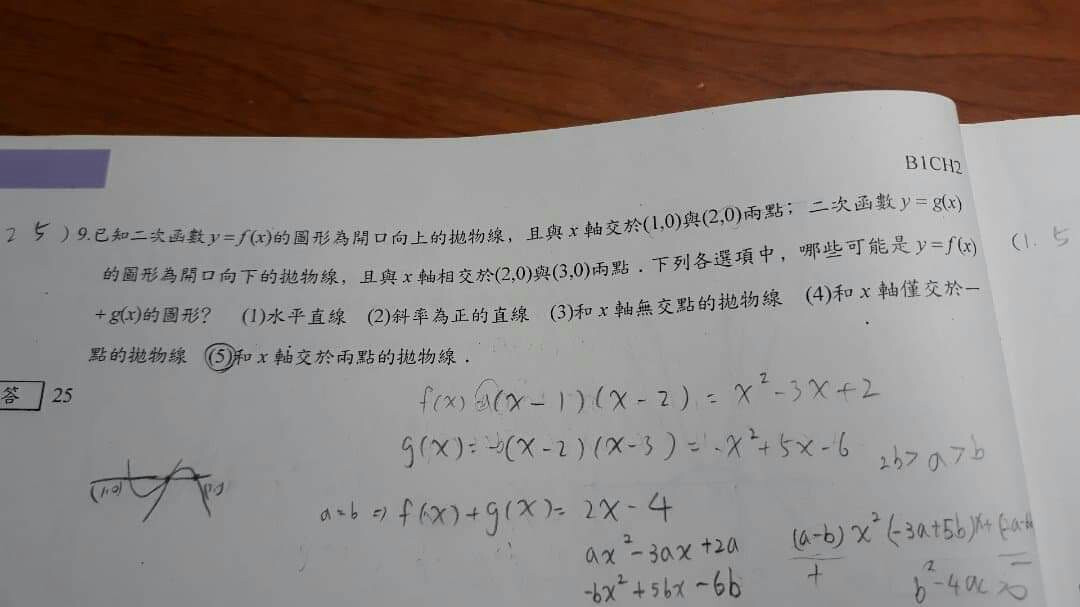 B1CH2
2 5 ) 9.已知二次函數 y=f(x)的圖形為開口向上的拋物線，且與 x 軸交於(1,0)與(2,0)兩點；二次函數 y = g(x)
的圖形為開口向下的拋物線，且與 x 軸相交於(2,0)與(3,0)兩點．下列各選項中，哪些可能是 y=f(x)
(1. 5
+ g(x)的圖形？ (1)水平直線 (2)斜率為正的直線 (3)和 x 軸無交點的拋物線 (4)和 x 軸僅交於一
點的拋物線 (5)和 x 軸交於兩點的拋物線．
答 25
f(x) = a(x-1)(x-2) = x²-3x+2
g(x) = -b(x-2)(x-3) = -x²+5x-6
2b>a>b
a=b ⇒ f(x)+g(x)= 2x-4
ax²-3ax+2a
-bx²+5bx-6b
(a-b)x²(-3a+5b)x+
+
b²-4ac